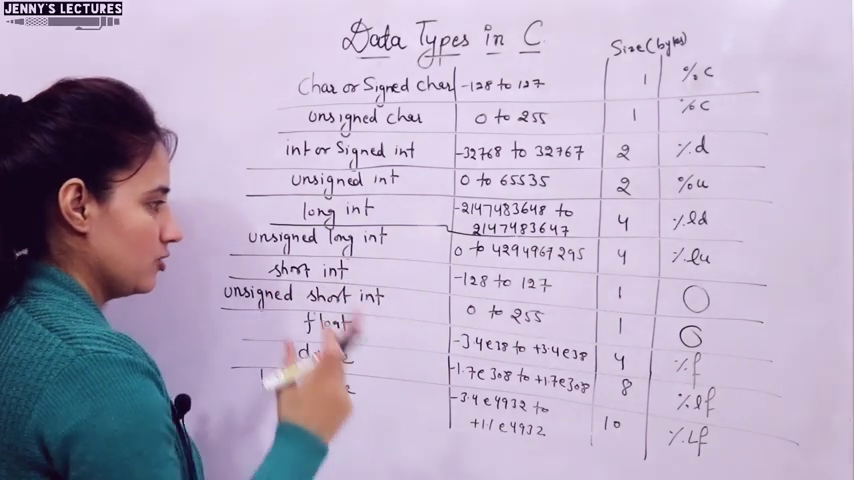 JENNY'S LECTURES
Data Types in C
Size(bytes)
Char or Signed Char -128 to 127 1 %c
unsigned char 0 to 255 1 %c
int or Signed int -32768 to 32767 2 %d
unsigned int 0 to 65535 2 %u
long int -2147483648 to 4 %ld
2147483647
unsigned long int 0 to 4294967295 4 %lu
short int -128 to 127 1
unsigned short int 0 to 255 1
float -3.4e38 to +3.4e38 4 %f
-1.7e308 to +1.7e308 8 %lf
-3.4e4932 to 10 %Lf
+1.1e4932